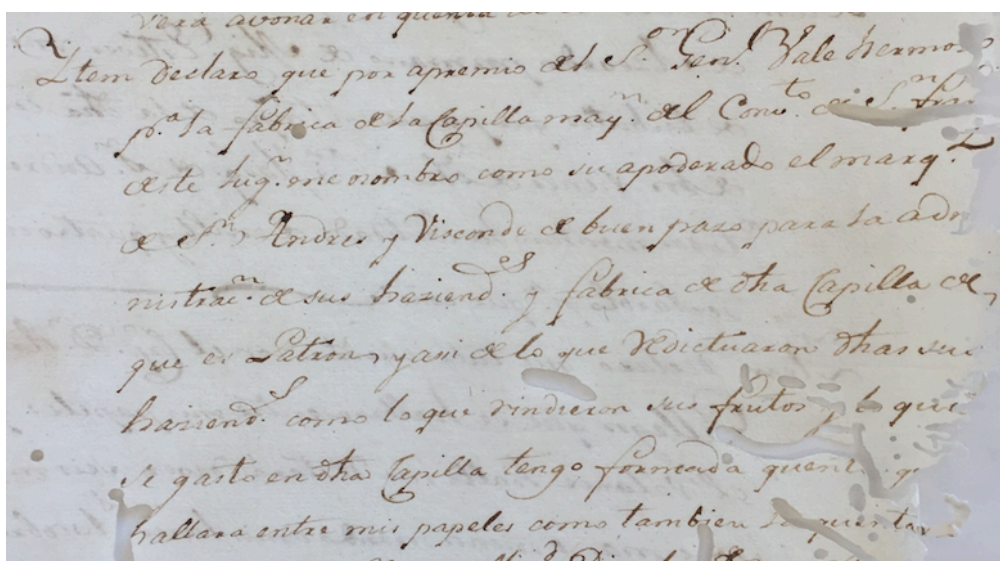 vera avonar en quenta
Ytem declaro que por apremio del S.on Gen.l Vale hermos
p.a la fabrica de la Capilla may.r del Conv.to de S.n Fran
deste lug.r me nombro como su apoderado el marq.z
de S.n Andres y Visconde de buen paso para la adi
nistrac.n de sus haziend.s y fabrica de dha Capilla de
que es Patron, y asi de lo que redictuaron dhas sus
haziend.s como lo que rindieron sus frutos y lo que
se gasto en dha Capilla tengo formada quent
hallara entre mis papeles como tambien la quenta